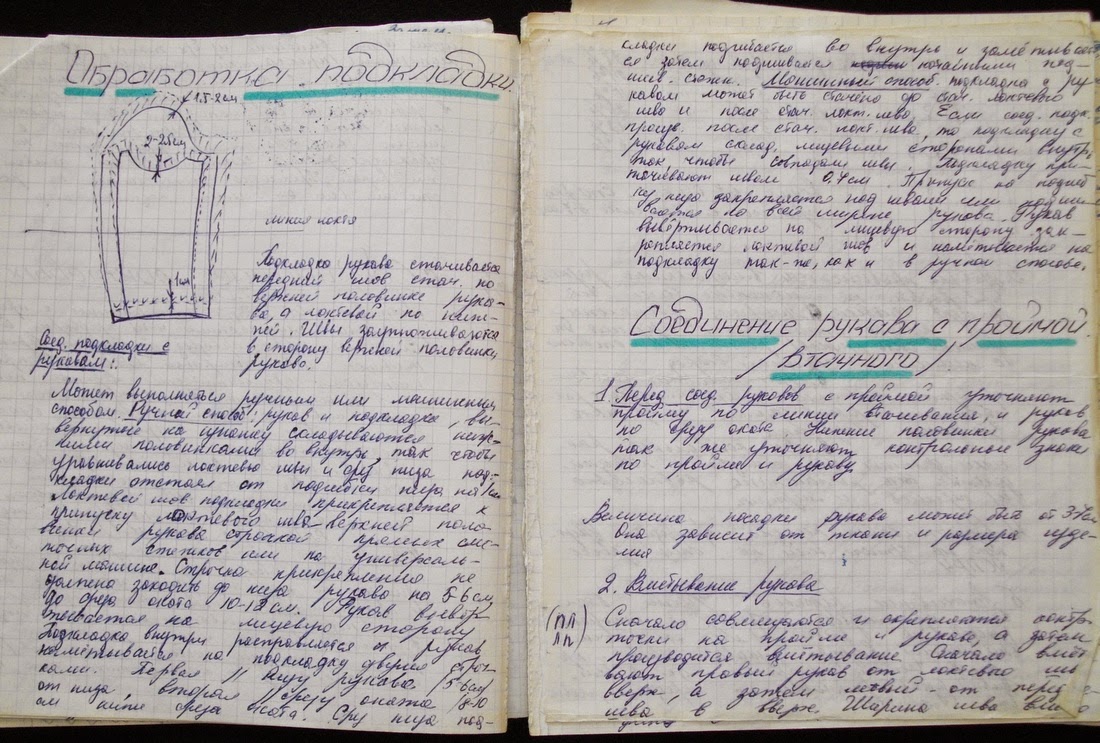 Обработка подкладки
1.5-2см
2-2.5см
линия локтя
1см
Подкладка рукава стачивается
передний шов стач. по
верхней половинке рука-
ва, а локтевой по ниж-
ней. Швы заутюживаются
в сторону верхней половинки
рукава.
Соед. подкладки с
рукавам:.
Может выполняется ручным или машинным
способом. Ручной способ: рукав и подкладка, вы-
вернутые на изнанку складываются ниж-
ними половинками во внутрь, так чтобы
уравнивались локтевые швы и срез низа под-
кладки отстоял от подгибки низа на 1см
Локтевой шов подкладки прикрепляется к
припуску локтевого шва верхней поло
винки рукава строчкой прямых сме-
точных стежков или на универсаль-
ной машине. Строчка прикрепления не
должено заходить до низа рукава на 5-6см,
до среза оката 10-12см. Рукав вывёр
тывается на лицевую сторону
Подкладка внутри расправляется и рукав
намётывается на подкладку двумя строч
ками. Первая // низу рукава (5-6см)
от низа, вторая // срезу оката 8-10
см ниже среза оката. Срез низа под-
кладки подгибается во внутрь и замётывает
ся затем подшивается потайными под-
шив. стежк. Машинный способ. подкладка с ру
кавом может быть стачено до стач. локтевого
шва и после стач. локт. шва. Если соед. подк.
произв. после стач. локт. шва, то подкладку с
рукавом склад. лицевыми сторонами внутрь,
так, чтобы совпадали швы. Подкладку при-
тачивают швом 0,7см. Припуск на подгиб
ку низа закрепляется под швами или подши-
вается по всей ширине рукава. Рукав
вывёртывается на лицевую сторону зак-
репляется локтевой шов и намётывается на
подкладку так-же, как и в ручном способе.
Соединение рукава с проймой
/втачного/
1. Перед соед. рукавов с проймой уточняют
пройму по линии втачивания, и рукав
по срезу оката. Нижние половинки рукава
так же уточняют контрольные знаки
по пройме и рукаву
Величина посадки рукава может быть от 3-7см
Она зависит от ткани и размера изде-
лия
2. Вмётывание рукава
(ПЛ
ЛП)
Сначало совмещаются и скрепляются контр.
точки на пройме и рукаве, а затем
производится вмётывание Сначало вмёт
вают правый рукав от локтевого шва
вверх, а затем левый от перед
шва, в вверх. Ширина шва